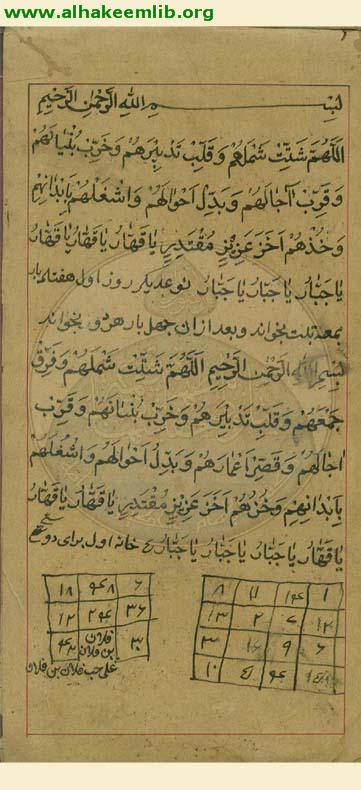 www.alhakeemlib.org
بسم الله الرحمن الرحیم
اللهم شتت شملهم وقلب تدبیرهم وخرب بنیانهم
وقرب آجالهم وبدل احوالهم واشغلهم بابدانهم
وخذهم اخذ عزیز مقتدر یا قهار یا قهار یا قهار
یا جبار یا جبار یا جبار روز اول هفتاد بار
بخواند وبعد ازان چهل بار هر روز بخواند
بسم الله الرحمن الرحیم اللهم شتت شملهم وفرق
جمعهم وقلب تدبیرهم وخرب بنیانهم وقرب
اجالهم وقصر اعمارهم وبدل احوالهم واشغلهم
بابدانهم وخذهم اخذ عزیز مقتدر یا قهار یا قهار
یا قهار یا جبار یا جبار یا جبار خانه اول برای
۱ ۱۴ ۱۱ ۸
۱۲ ۷ ۲ ۱۳
۶ ۹ ۱۶ ۳
۱۵ ۴ ۵ ۱۰
۶ ۴۸ ۱۸
۳۶ ۲۴ ۱۲
۳۰ فلان بن فلان ۴۲
علی حب فلان بن فلان